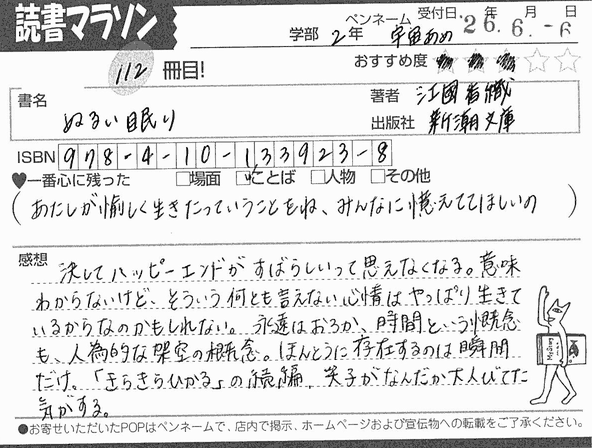 読書マラソン
学部 2年 ペンネーム 宇宙あめ 受付日 '26.年6.月-6日
112 冊目!
おすすめ度 ★★★☆☆
書名 ぬるい眠り
著者 江國香織
出版社 新潮文庫
ISBN 978-4-10-133923-8
♥一番心に残った □場面 ☑ことば □人物 □その他
(あたしが愉しく生きたっていうことをね、みんなに憶えててほしいの)
感想
決してハッピーエンドがすばらしいって思えなくなる。意味
わからないけど、そういう何とも言えない心情はやっぱり生きて
いるからなのかもしれない。永遠はおろか、時間という概念
も、人為的な架空の概念。ほんとうに存在するのは瞬間
だけ。「きらきらひかる」の続編、笑子がなんだか大人びてた
気がする。
●お寄せいただいたPOPはペンネームで、店内で掲示、ホームページおよび宣伝物への転載をご了承ください。